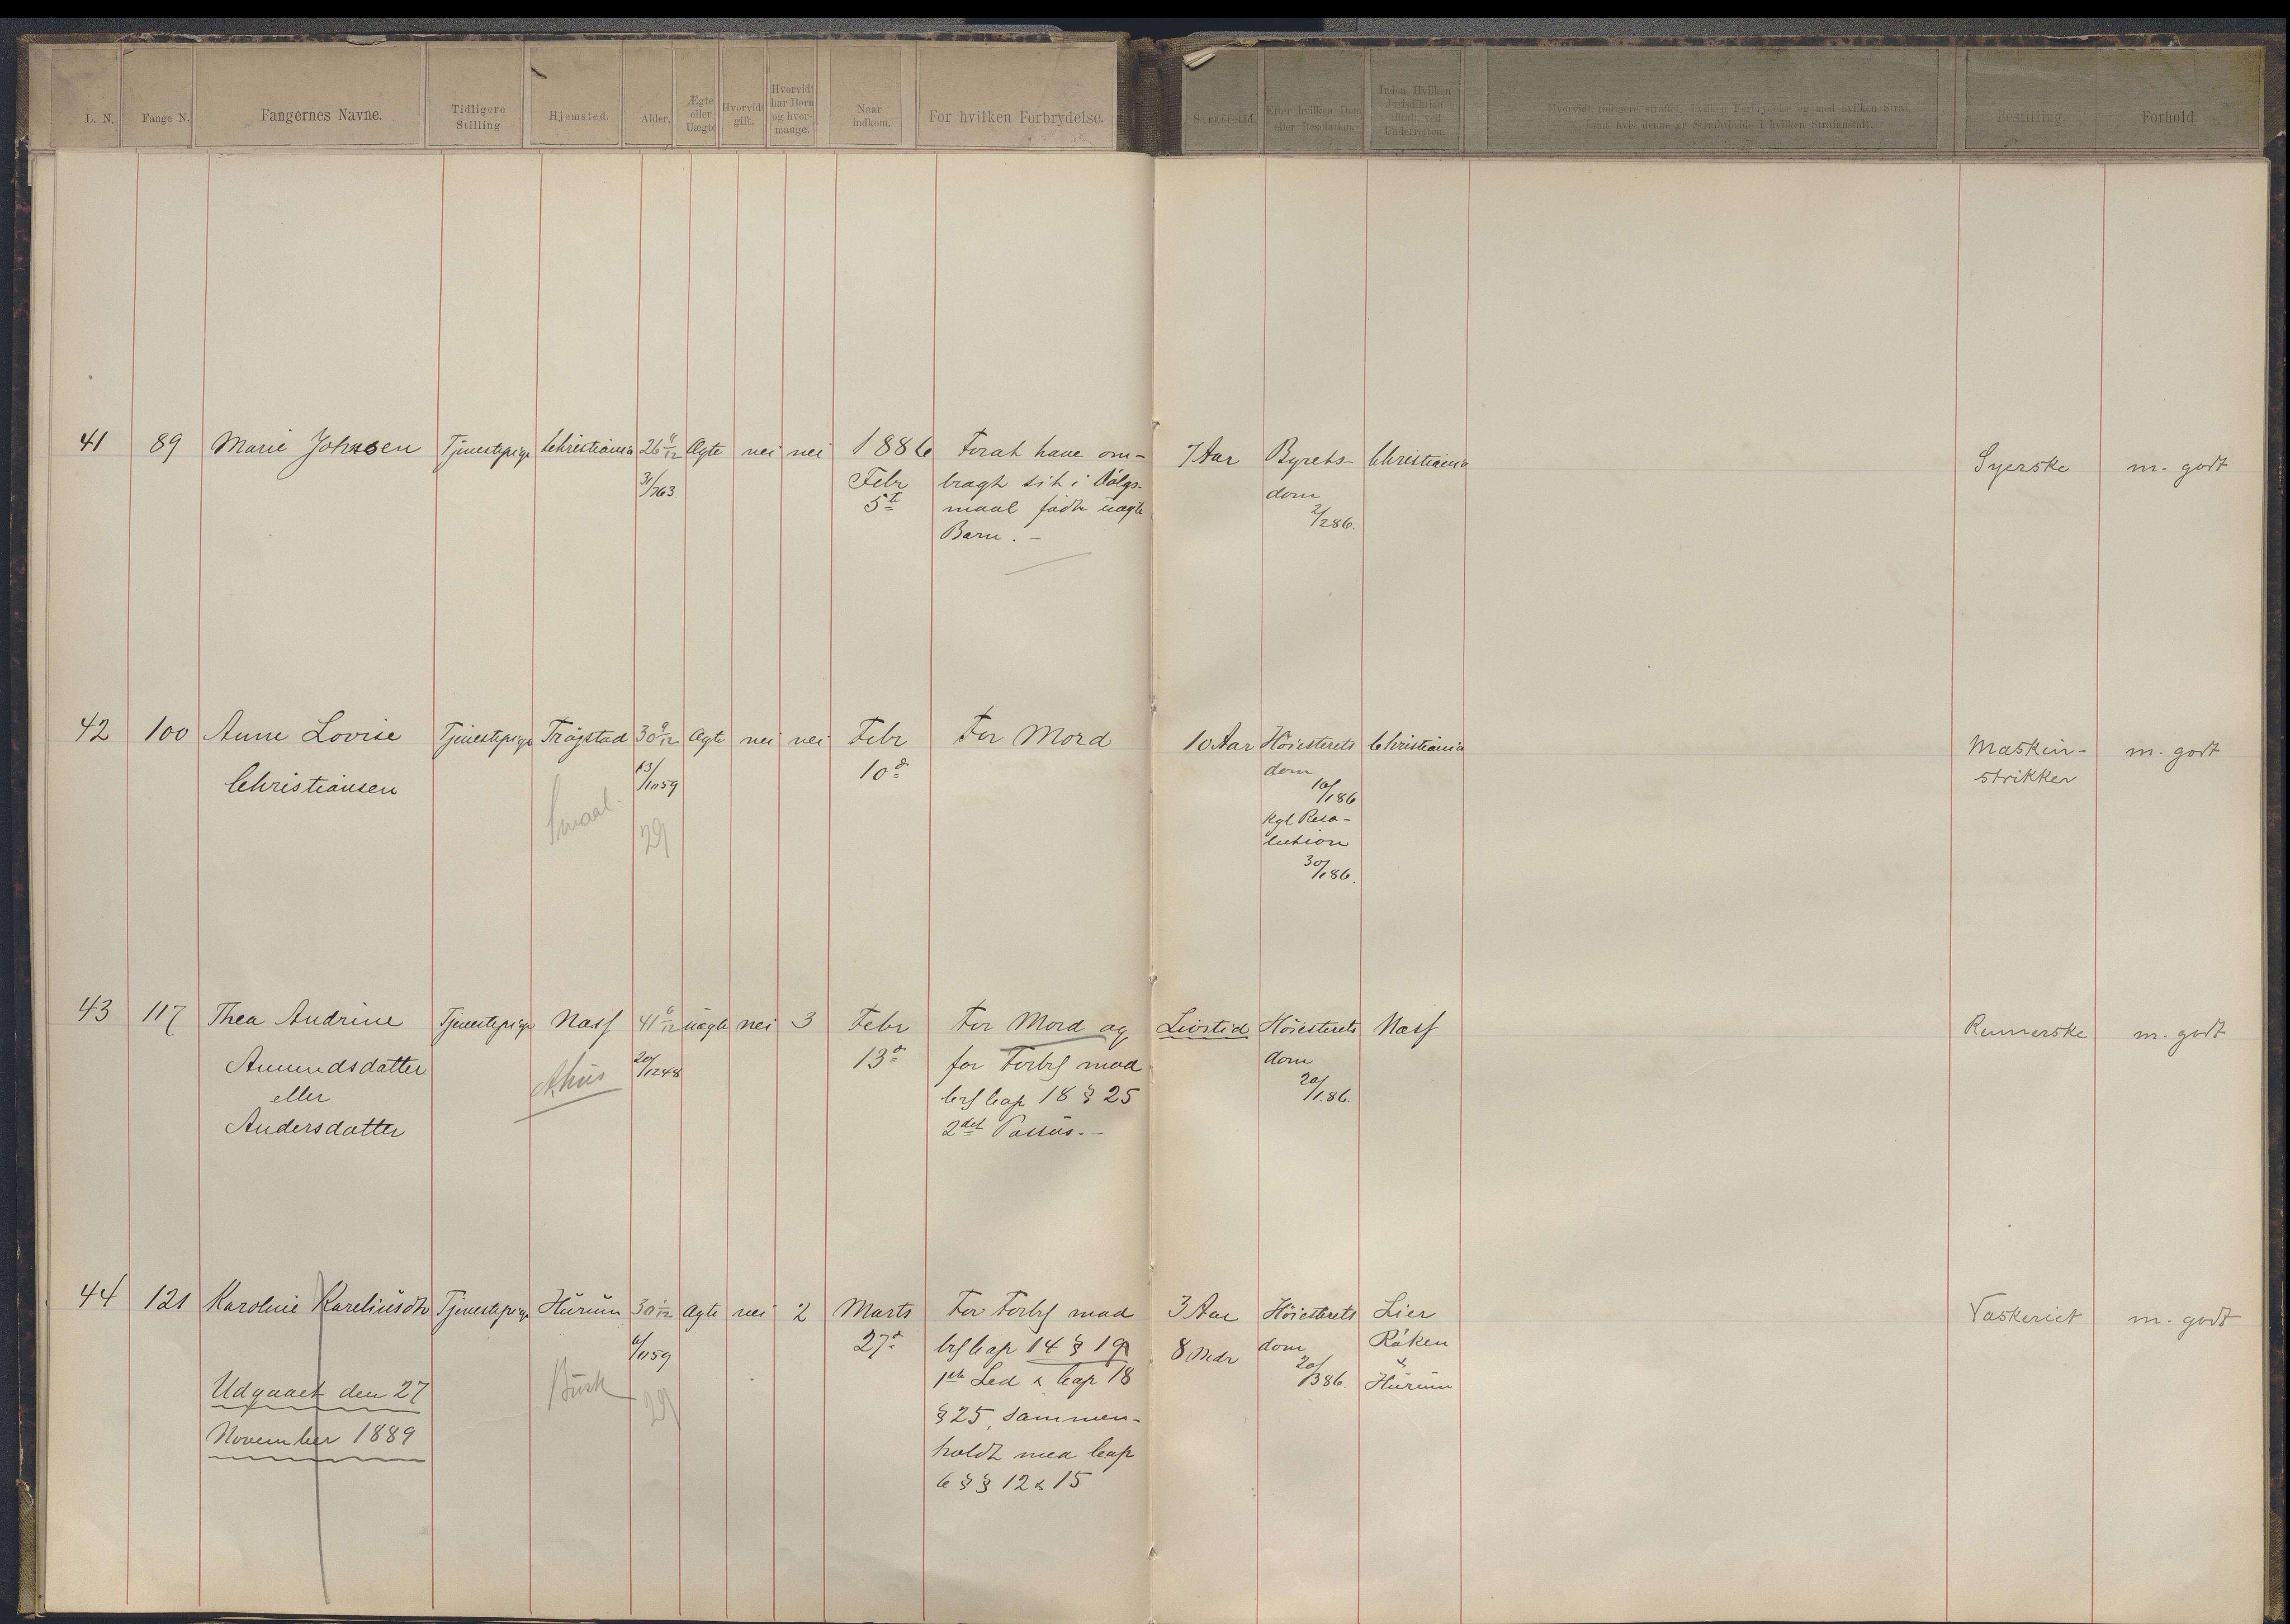 L. N.
Fange N.
Fangernes Navne.
Tidligere
Stilling
Hjemsted.
Alder.
Ægte
eller
Uægte
Hvorvidt
gift.
Hvorvidt
har Børn
og hvor-
mange.
Naar
indkom.
For hvilken Forbrydelse.
Straffetid.
Efter hvilken Dom
eller Resolution.
Inden Hvilken
Jurisdiktion
tiltalt ved
Underretten.
Hvorvidt tidligere straffet, hvilken Forbrydelse og med hvilken Straf,
samt hvis denne er Strafarbeide i hvilken Strafanstalt.
Bestilling
Forhold
41 89 Marie Johnsen Tjenestepige Christiania 26 11/12 Ægte nei nei 1886 Forat have om- 7 Aar Byrets- Christiania Syerske m. godt
3/1 63 Febr bragt sit i Dölgs- dom
5te maal födte uægte 2/2 86.
Barn. –
42 100 Anne Lovise Tjenestepige Trøgstad 30 9/12 Ægte nei nei Febr For Mord 10 Aar Höiesterets Christiania Maskin- m. godt
Christiansen 13/11 59 10de dom strikker
Smaal. 16/1 86
29 Kgl Reso-
lution
30/1 86.
43 117 Thea Andrine Tjenestepige Næss 41 6/12 uægte nei 3 Febr For Mord og Livstid Höiesterets Næss Rennerske m. godt
Amundsdatter Ahus 20/12 48 13de for Forbr mod dom
eller Crl Cap 18 § 25 20/1 86.
Andersdatter 2det Passus. –
44 121 Karoline Kareliusdtr Tjenestepige Hürüm 30 1/12 Ægte nei 2 Marts For Forbr mod 3 Aar Höiesterets Lier Vaskeriet m. godt
6/11 59 27de Crl Cap 14 § 19 8 Mdr dom Röken
Udgaaet den 27 Busk 29 1ste Led & Cap 18 20/3 86. & Hürüm
November 1889 § 25, sammen-
holdt med Cap
6 § § 12 & 15